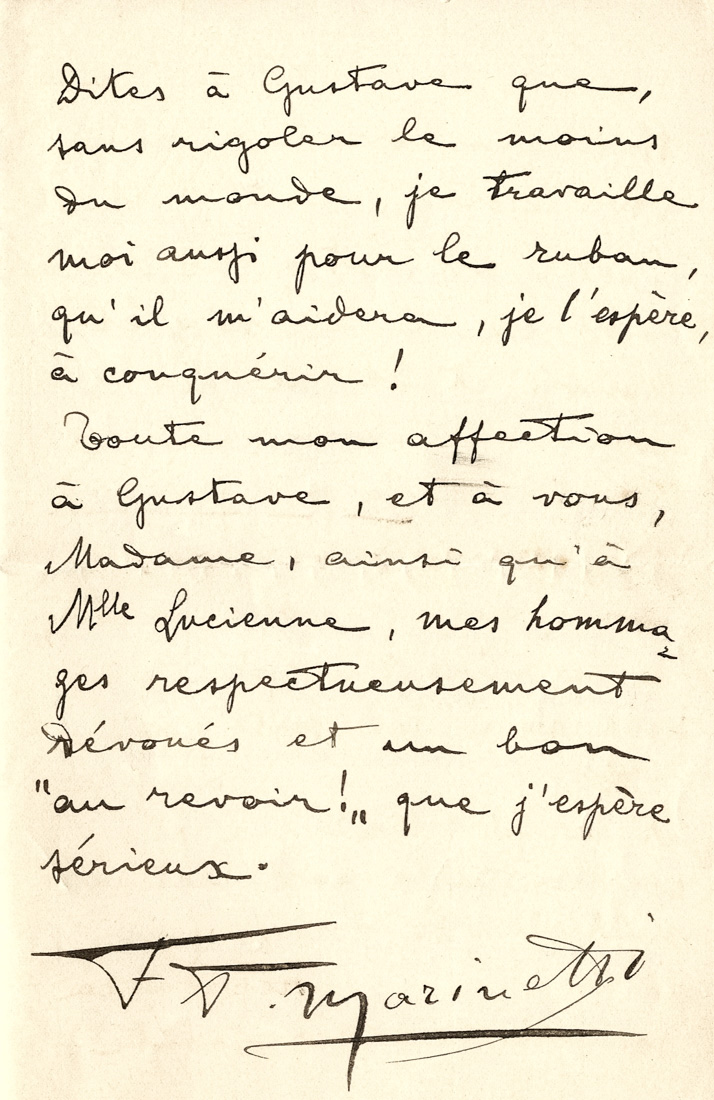 Dites à Gustave que,
sans rigoler le moins
du monde, je travaille
moi aussi pour le ruban,
qu'il m'aidera, je l'espère,
à conquérir !
Toute mon affection
à Gustave, et à vous,
Madame, ainsi qu'à
Mlle Lucienne, mes homma-
ges respectueusement
dévoués et un bon
"au revoir!„ que j'espère
sérieux.
F. T. Marinetti